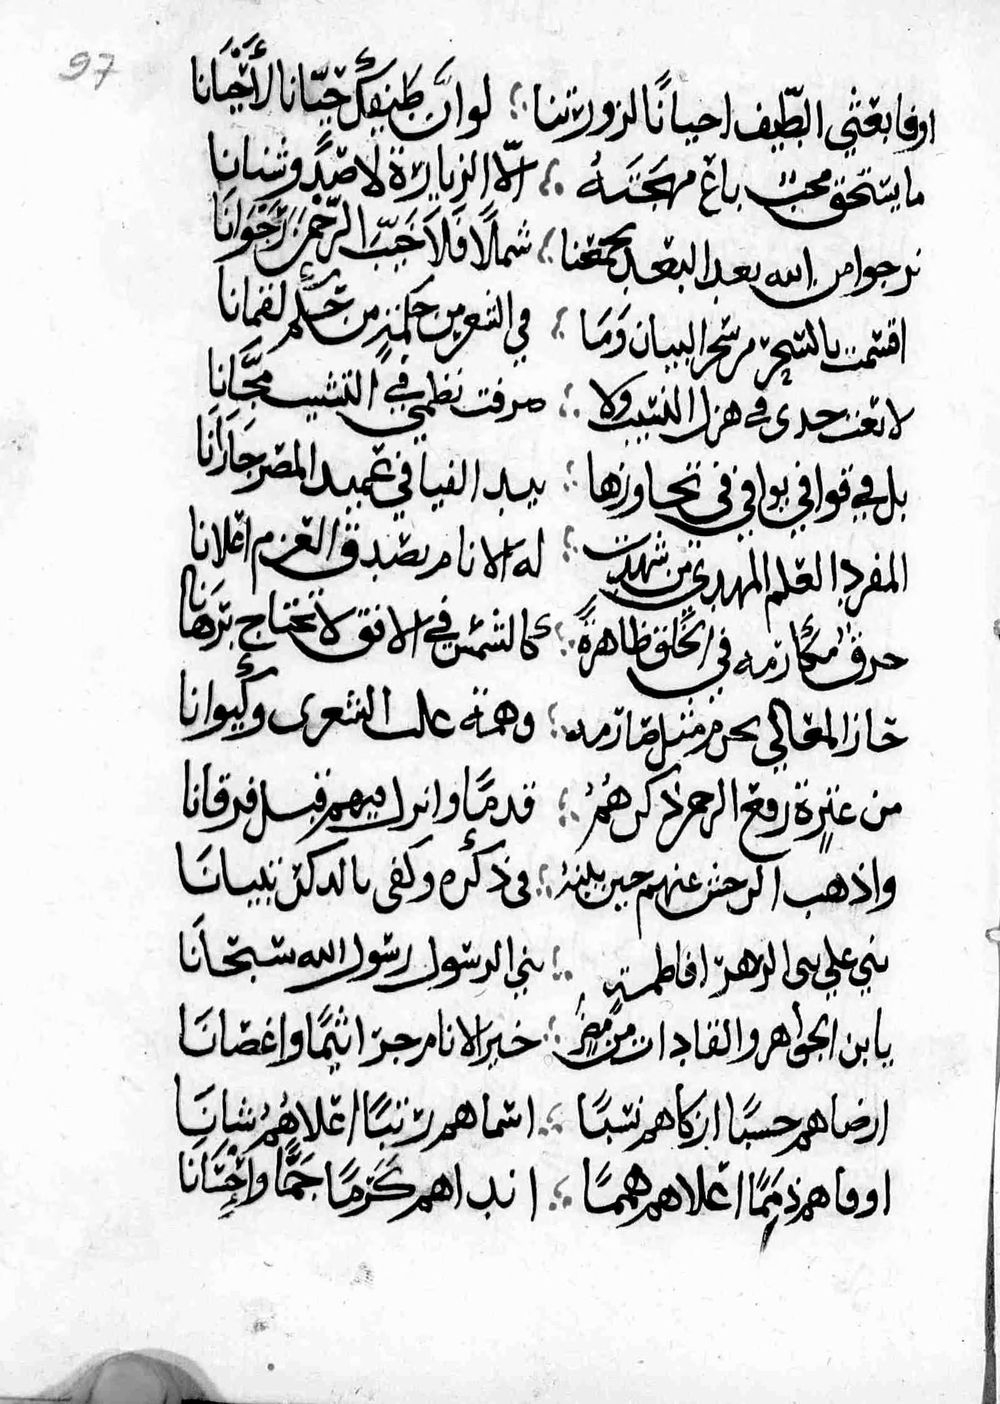 97
اوفابعثي الطّيف احيانًا لزورتنا ؛ لو انّ طيفكَ حيّانا لأحْيَانا
ما يستحق محبّ باع مهجَتَهُ ؛ الّا الزيارة لا صدًّا وشنانا
نرجوا من الله بعد البعد يجمعنا ؛ شملًا فلا خيّبَ الرحمن رَجْوانا
اقسمت بالسحر من سحر البيان وَمَا ؛ في الشعر من حكمةٍ من حكم لقمانا
لا تعن جدى في هزل النسيب ولا ؛ صرفت نظمي في التشبيب مجَّانا
بل في قوافي يوافي في تجاوزها ؛ بيد الفيافي عميد المصر جَازَانَا
المفرد العلم المهدي من شهدت ؛ له الانام بصدق العزم اعلانا
حدق مكارمه في الخلق ظاهرةً ؛ كالشمس في الافق لا تحتاج برهانا
حاز المعالي بحزم مثل صارمه ؛ وهمة علت الشعرى وكيوانا
من عترة رفع الرحمن ذكرهُمُ ؛ قدمًا وانزل فيهم قبل فرقانا
واذهب الرجس عنهم حين بينهُ ؛ في ذكره وكفى بالذكر تبيانا
بني علي بني الزهرا فاطمةٍ ؛ بني الرسول رسول الله سبحانَا
يا بن الجواهر والقادات من مضرٍ ؛ خير الانام جراثيمًا واغصانَا
ارضاهم حسبًا ازكاهم نسبًا ؛ اسماهم رتبًا اعلاهُمُ شانَا
اوفاهم ذممًا اعلاهم هممًا ؛ انداهم كَرَمًا جَمًّا واحْسَانَا